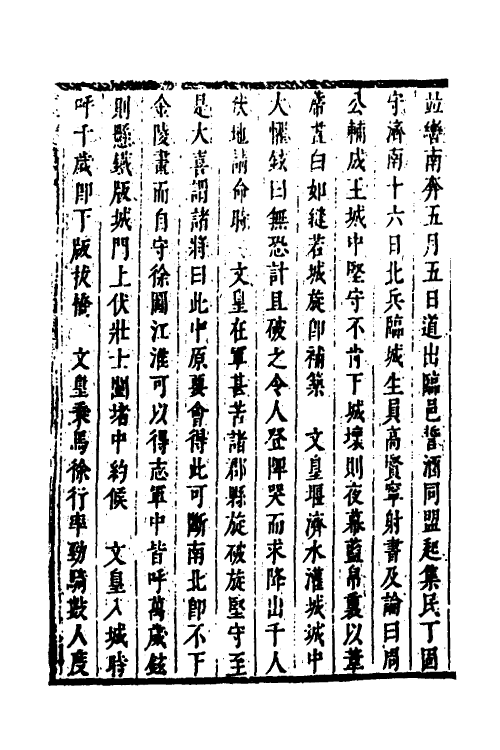 並轡南奔五月五日道出臨邑誓酒同盟起集民丁固
守濟南十六日北兵臨城生員高賢寧射書及論曰周
公輔成王城中堅守不肯下城壞則夜幕藍帛裹以葦
席堊白如繚若城旋卽補築　文皇堰濟水灌城城中
人懼鉉曰無恐計且破之令人登陴哭而求降出千人
伏地請命時　文皇在軍甚苦諸郡縣旋破旋堅守至
是大喜謂諸將曰此中原要會得此可斷南北卽不下
金陵畫而自守徐圖江淮可以得志軍中皆呼萬歲鉉
則懸鐵版城門上伏壯士闉堵中約候　文皇入城時
呼千歲卽下版拔橋　文皇乘馬徐行率勁騎數人度